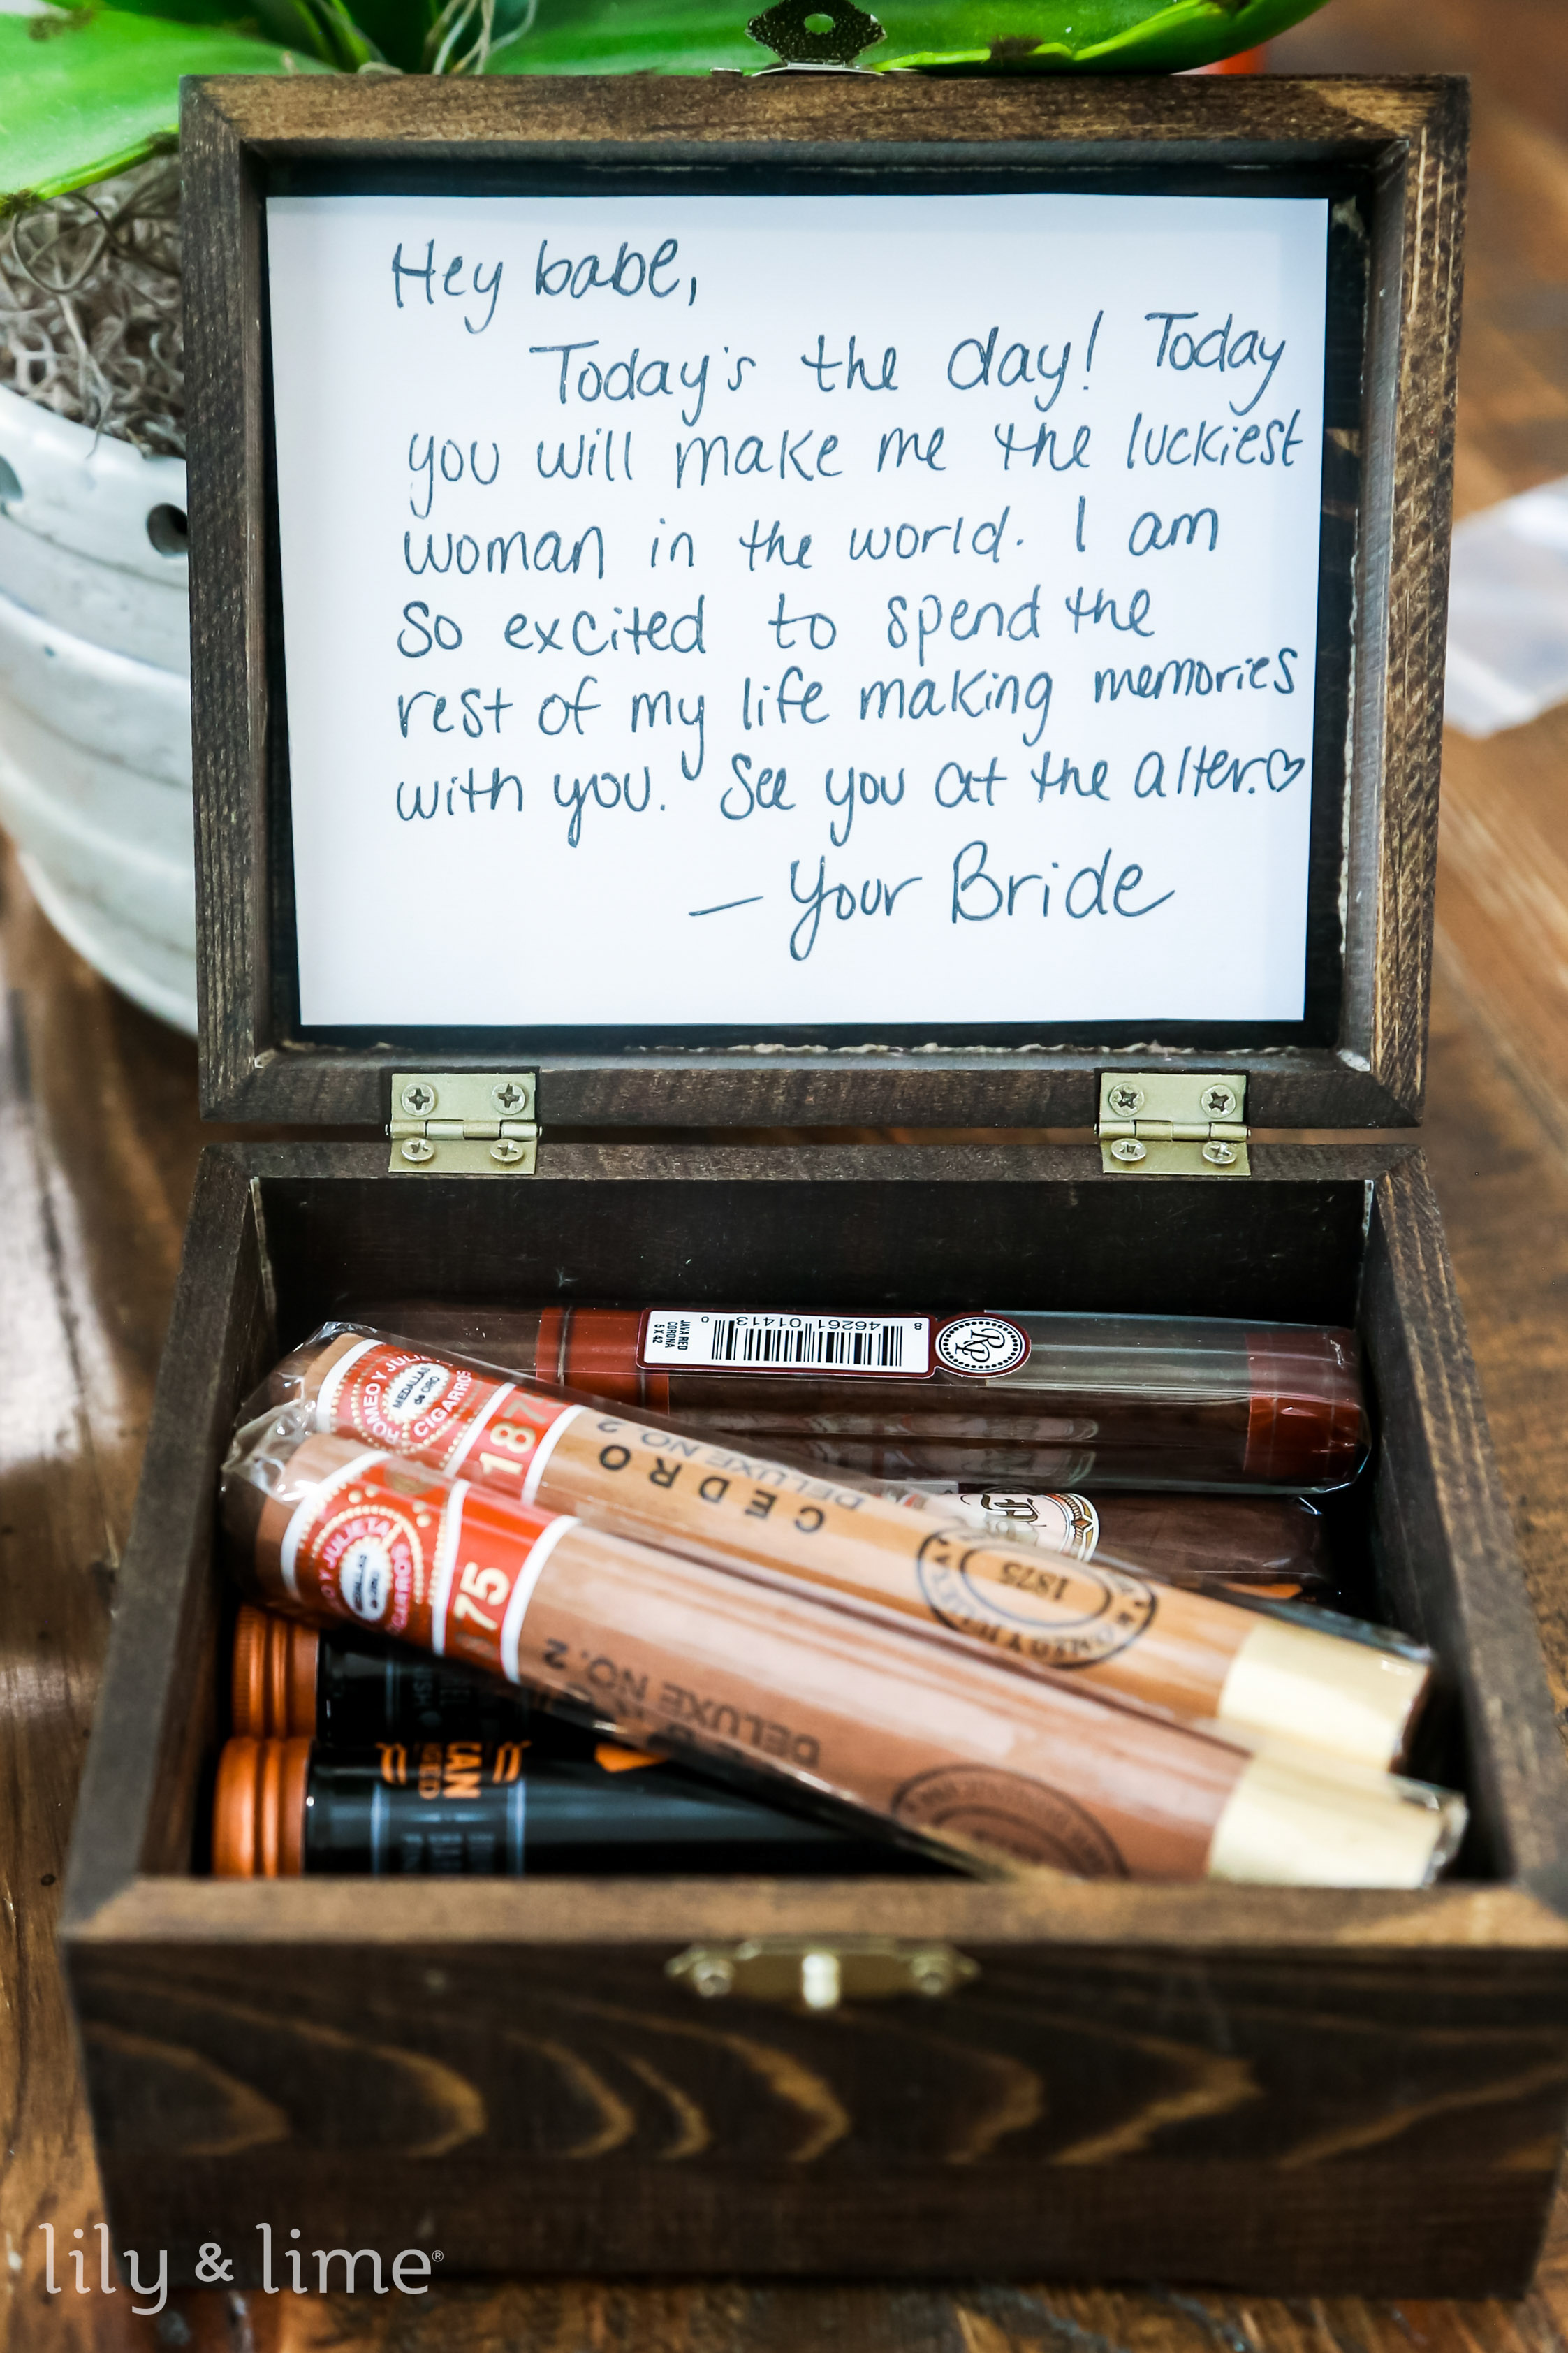 Hey babe,
Today's the day! Today
you will make me the luckiest
woman in the world. I am
so excited to spend the
rest of my life making memories
with you. See you at the alter.♡
— Your Bride
8 46261 01413 0
JAVA RED
CORONA
5 X 42
RP
ROMEO Y JULIETA
MEDALLAS
de ORO
CIGARROS
1875
CEDRO
DELUXE NO. 2
1875
JULIETA
75
DELUXE NO. 2
lily & lime®